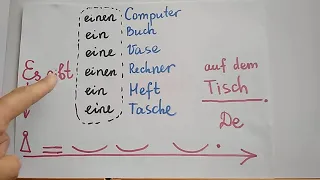 einen Computer
ein Buch
eine Vase
Es gibt einen Rechner auf dem
ein Heft Tisch
eine Tasche De